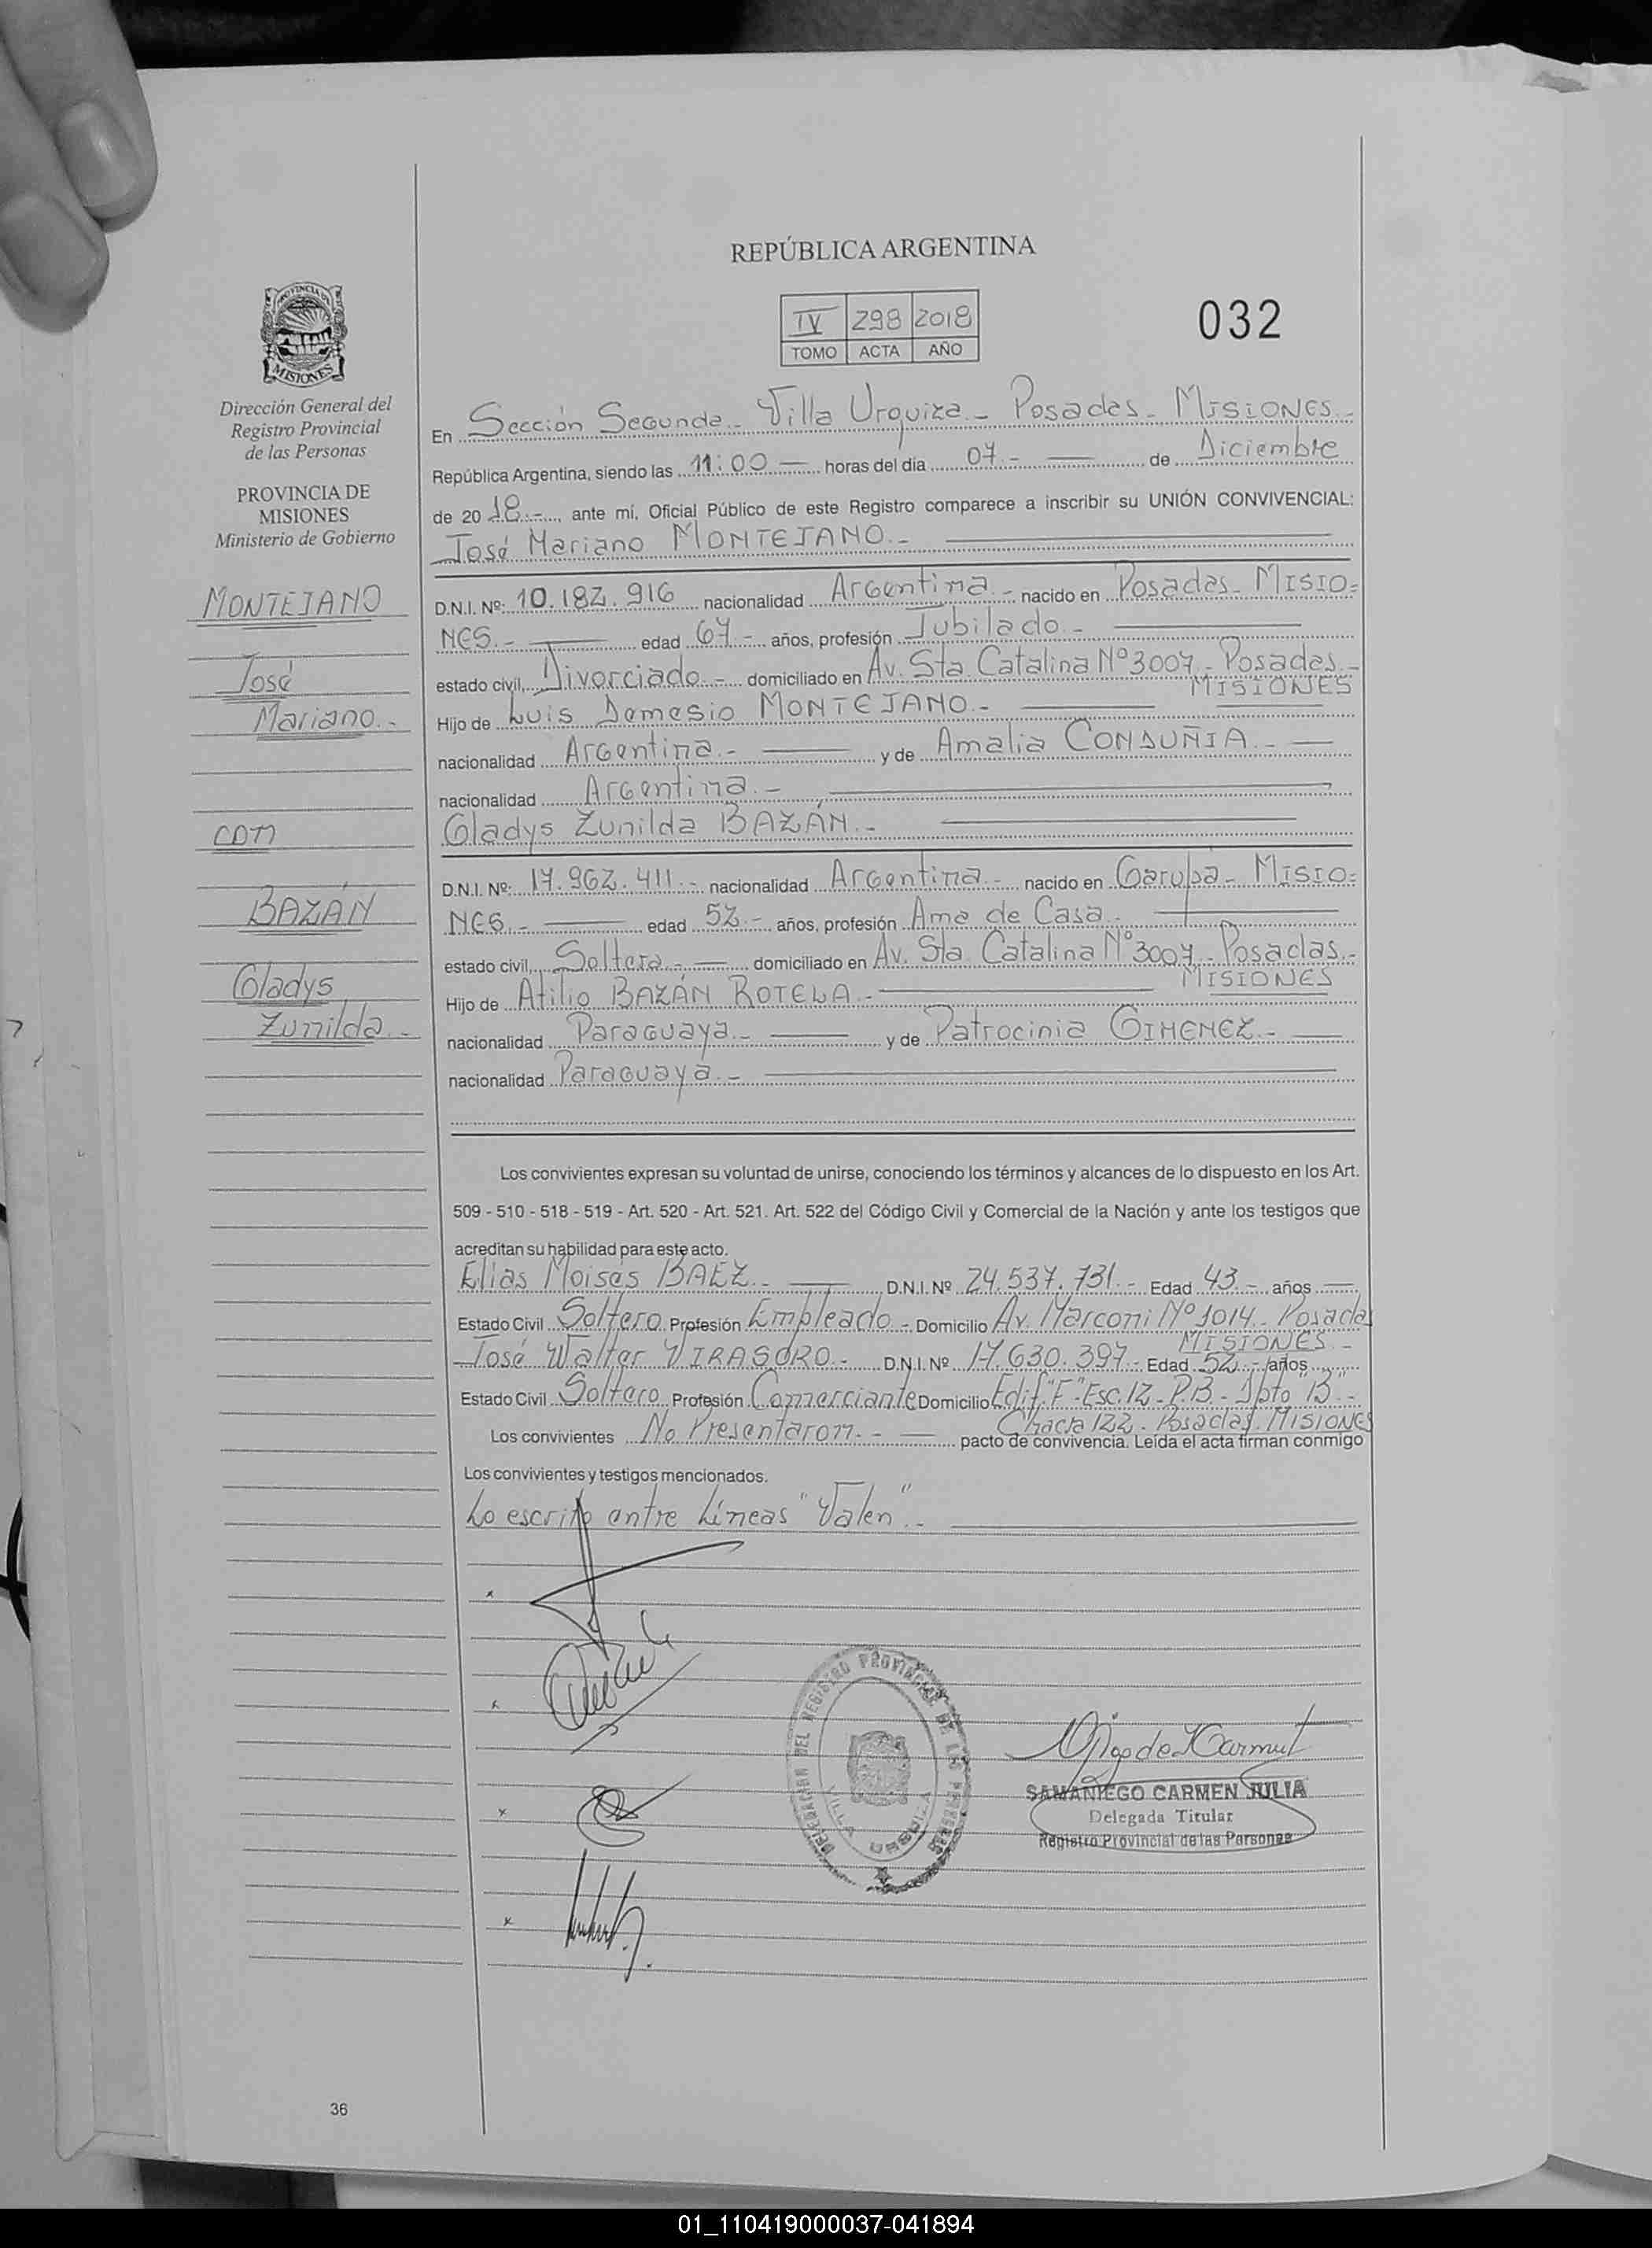 REPÚBLICA ARGENTINA
IV 298 2018
TOMO ACTA AÑO
032
PROVINCIA DE
MISIONES
Dirección General del
Registro Provincial
de las Personas
PROVINCIA DE
MISIONES
Ministerio de Gobierno
MONTEJANO
José
Mariano.-
CON
BAZÁN
Gladys
Zunilda.-
En Sección Segunda - Villa Urquiza - Posadas - MISIONES.-
República Argentina, siendo las 11:00 — horas del día 07.- — de Diciembre
de 20 18.-, ante mí, Oficial Público de este Registro comparece a inscribir su UNIÓN CONVIVENCIAL:
José Mariano MONTEJANO.-
D.N.I. Nº: 10.182.916 nacionalidad Argentina.- nacido en Posadas - MISIO=
NES.- — edad 67.- años, profesión Jubilado.-
estado civil, Divorciado.- domiciliado en Av. Sta Catalina Nº 3007 - Posadas.-
MISIONES
Hijo de Luis Demesio MONTEJANO.-
nacionalidad Argentina.- — y de Amalia
nacionalidad Argentina.-
Gladys Zunilda BAZÁN.-
D.N.I. Nº: 17.962.411.- nacionalidad Argentina.- nacido en Garupá - MISIO=
NES.- — edad 52.- años, profesión Ama de Casa.-
estado civil, Soltera.- — domiciliado en Av. Sta Catalina Nº 3007 - Posadas.-
MISIONES
Hijo de Atilio BAZÁN ROTELA.-
nacionalidad Paraguaya.- — y de Patrocinia GIMENEZ.-
nacionalidad Paraguaya.-
Los convivientes expresan su voluntad de unirse, conociendo los términos y alcances de lo dispuesto en los Art.
509 - 510 - 518 - 519 - Art. 520 - Art. 521. Art. 522 del Código Civil y Comercial de la Nación y ante los testigos que
acreditan su habilidad para este acto.
Elias Moisés BAEZ.- — D.N.I. Nº 24.537.731.- Edad 43.- años
Estado Civil Soltero Profesión Empleado.- Domicilio Av. Marconi Nº 1014 - Posadas
MISIONES.-
José Walter VIRASORO.- D.N.I. Nº 17.630.397.- Edad 52.- años
Estado Civil Soltero Profesión Comerciante Domicilio Edif. "F" Esc. 12 - P.B. - Dpto "B".-
Chacra 122 - Posadas - MISIONES
Los convivientes No Presentaron.- — pacto de convivencia. Leída el acta firman conmigo
Los convivientes y testigos mencionados.
Lo escrito entre Líneas "Valen".-
DELEGACION DEL REGISTRO PROVINCIAL DE LAS PERSONAS
VILLA URQUIZA
SAMANIEGO CARMEN JULIA
Delegada Titular
Registro Provincial de las Personas
36
01_110419000037-041894